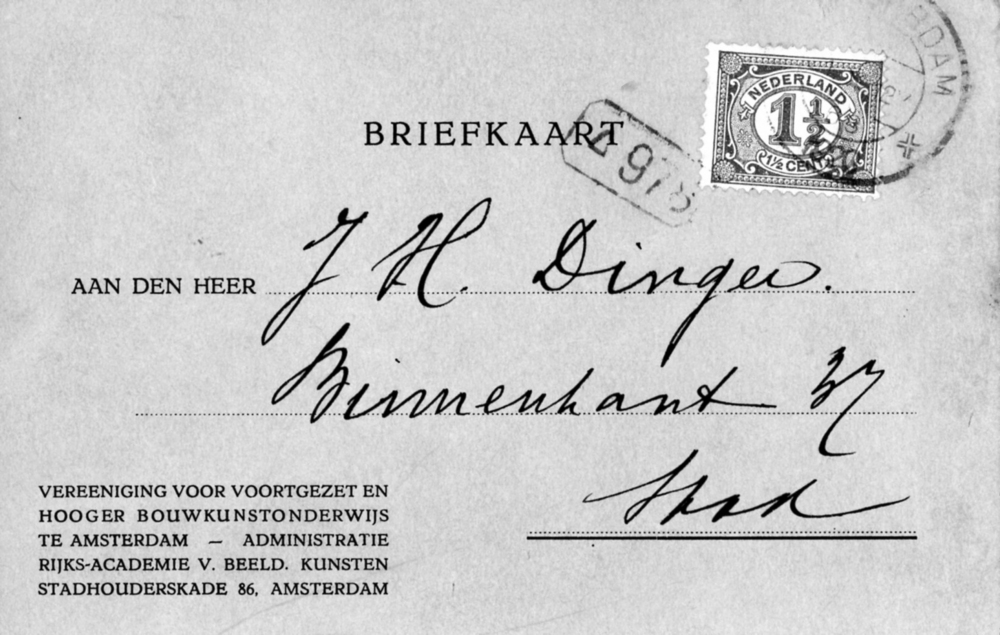 BRIEFKAART
NEDERLAND
1½
1½ CENT
978
AAN DEN HEER J H. Dinger.
Binnenkant 37
Stad
VEREENIGING VOOR VOORTGEZET EN
HOOGER BOUWKUNSTONDERWIJS
TE AMSTERDAM — ADMINISTRATIE
RIJKS-ACADEMIE V. BEELD. KUNSTEN
STADHOUDERSKADE 86, AMSTERDAM